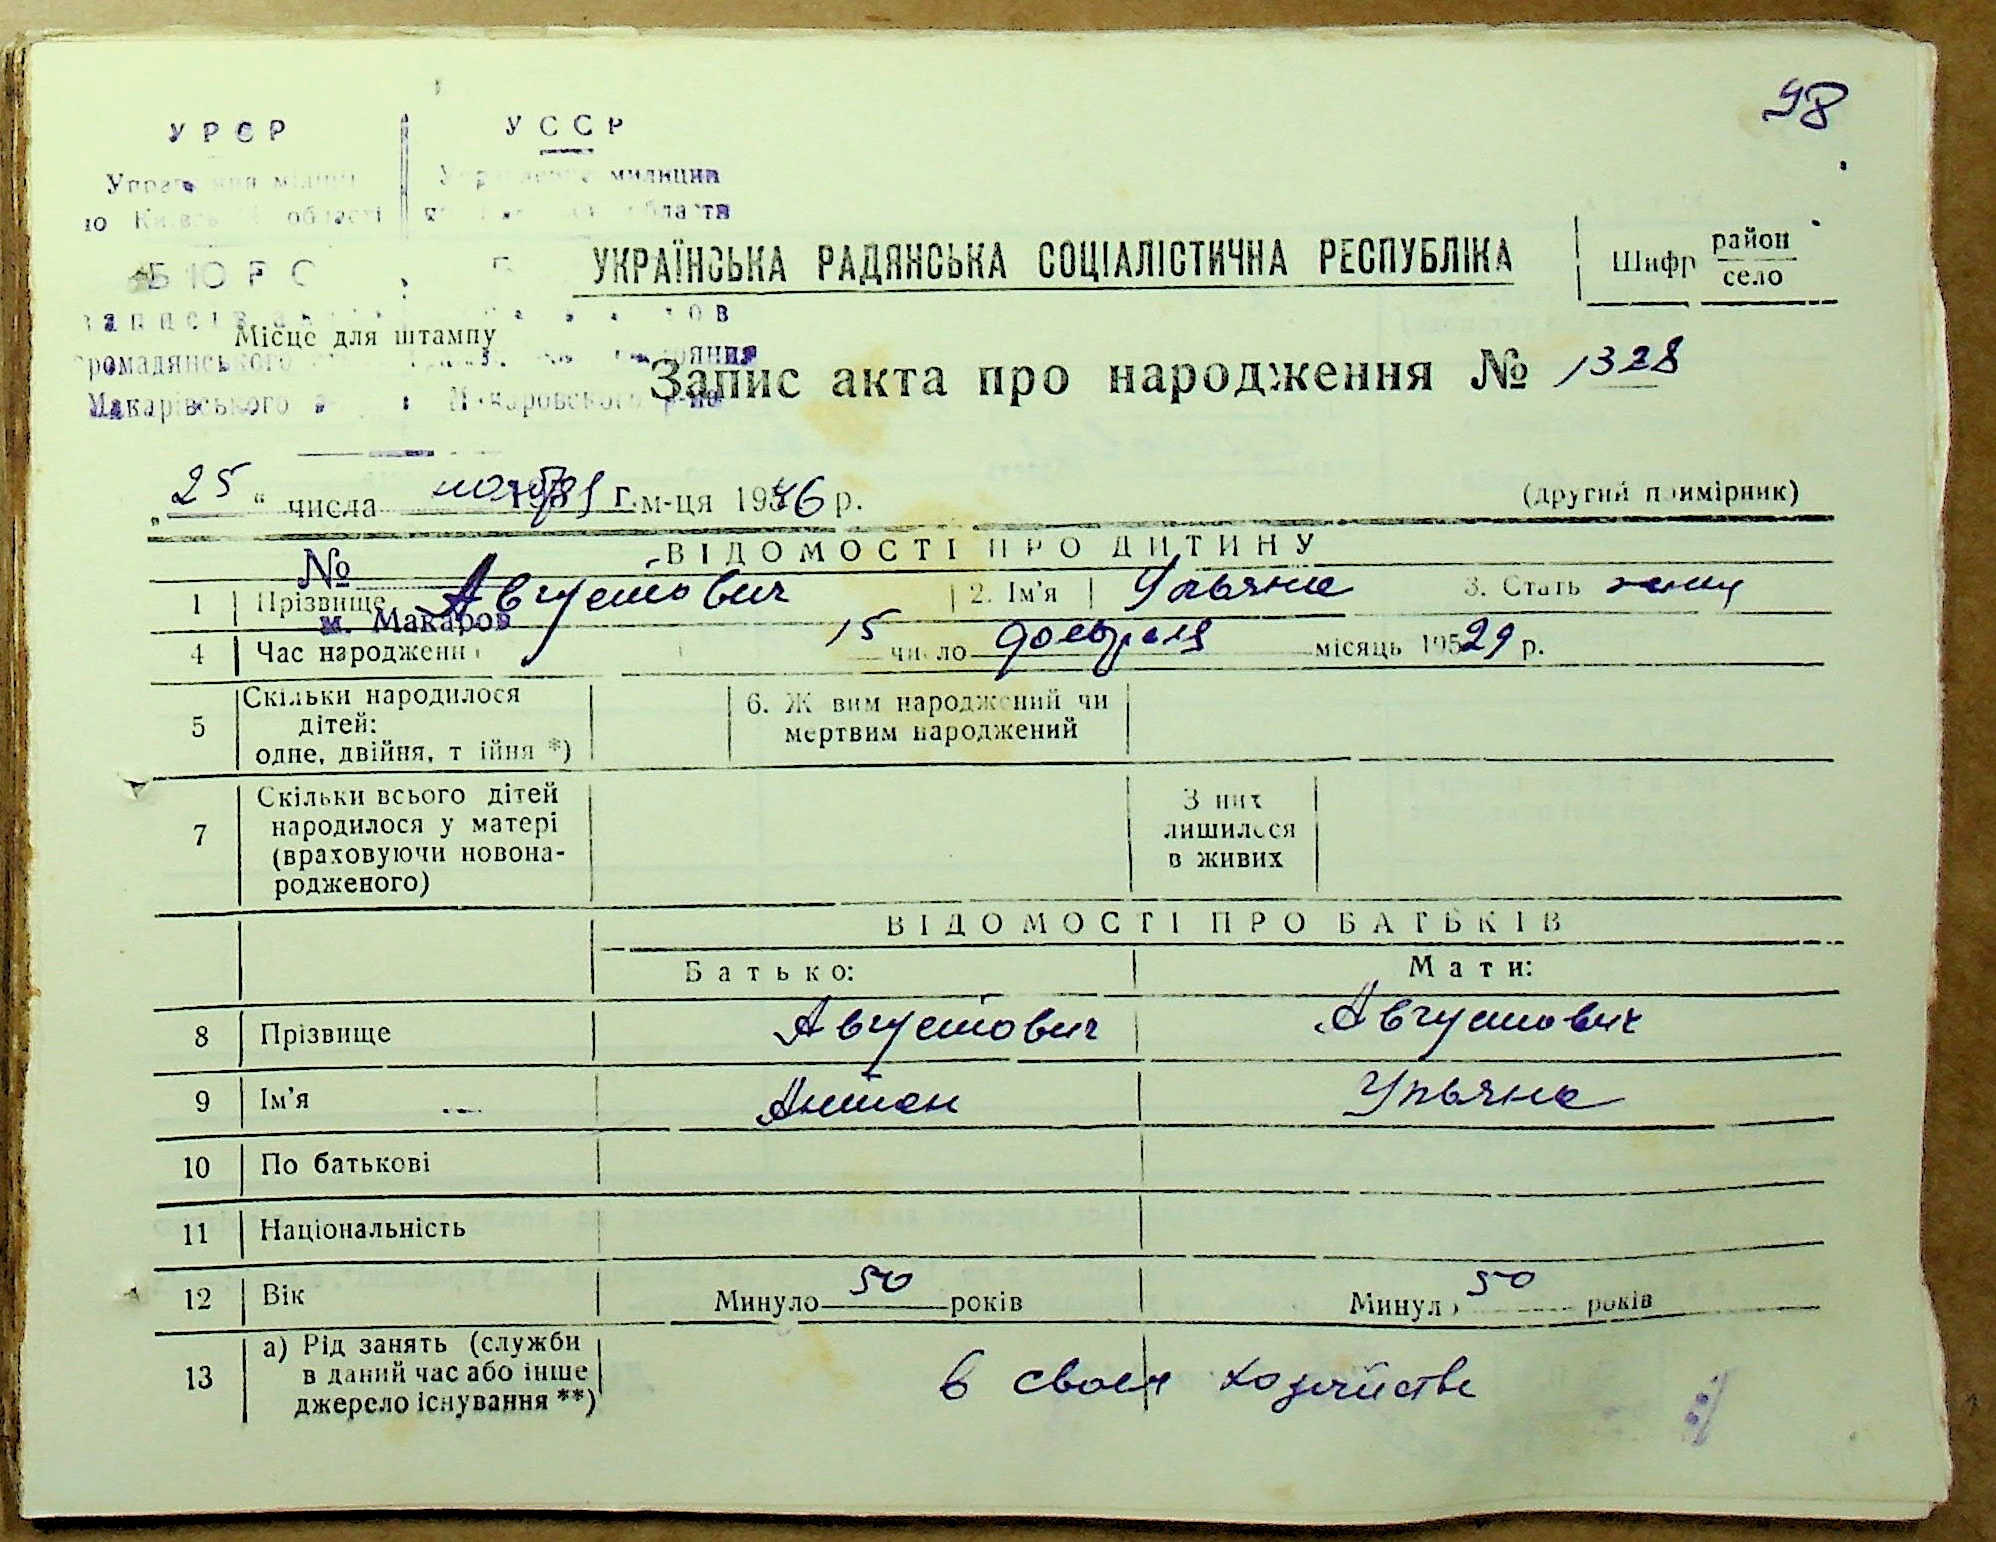 98
УРСР УССР
милиции
області
БЮРО
УКРАЇНСЬКА РАДЯНСЬКА СОЦІАЛІСТИЧНА РЕСПУБЛІКА
Шифр район
село
Місце для штампу
громадянського
Запис акта про народження № 1328
Макарівського Макаровского р-на
"25" числа ноября м-ця 1946 р.
(другий примірник)
ВІДОМОСТІ ПРО ДИТИНУ
№
1 Прізвище Августович 2. Ім'я Ульяна 3. Стать женщ
м. Макаров
4 Час народження 15 число февраля місяць 1929 р.
5 Скільки народилося дітей: одне, двійня, трійня *) 6. Живим народжений чи мертвим народжений
7 Скільки всього дітей народилося у матері (враховуючи новонародженого) З них лишилося в живих
ВІДОМОСТІ ПРО БАТЬКІВ
Батько: Мати:
8 Прізвище Августович Августович
9 Ім'я Антон Ульяна
10 По батькові
11 Національність
12 Вік Минуло 50 років Минуло 50 років
13 а) Рід занять (служби в даний час або інше джерело існування **) в своем хозяйстве